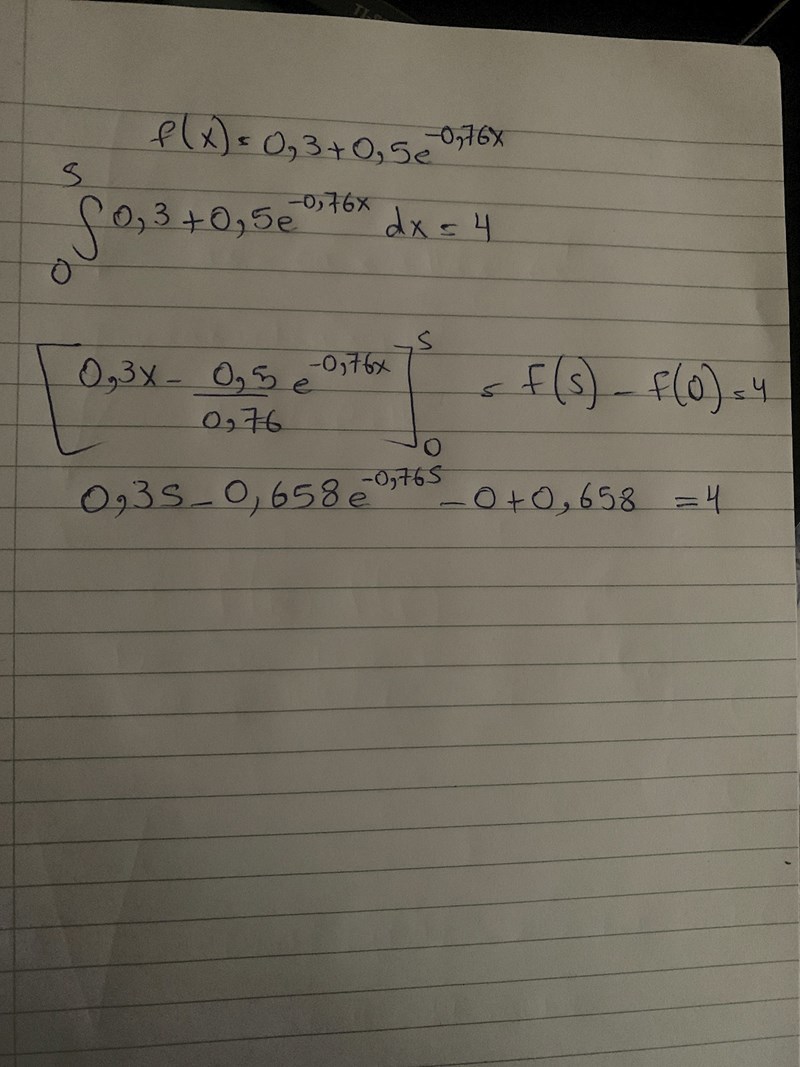 f(x) = 0,3+0,5e^-0,76x
∫_0^s 0,3+0,5e^-0,76x dx = 4
[0,3x - 0,5/0,76 e^-0,76x]_0^s = F(s) - F(0) = 4
0,3s - 0,658e^-0,76s - 0 + 0,658 = 4